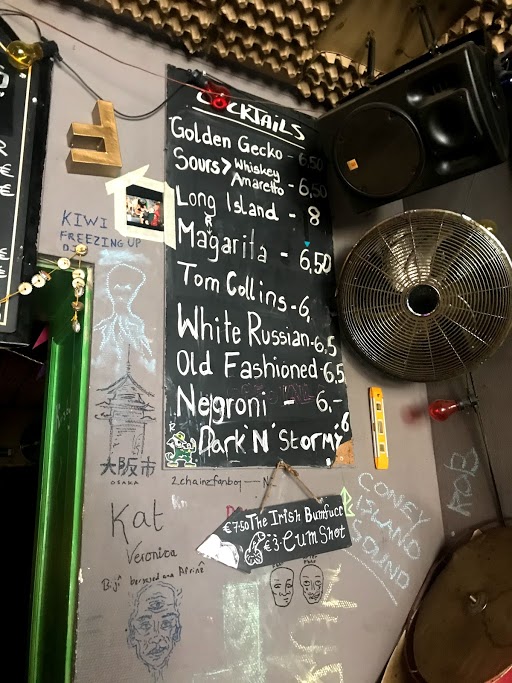 COCKTAILS
Golden Gecko - 6,50
Sours > Whiskey
Amaretto - 6,50
Long Island - 8
Magarita - 6,50
r
Tom Collins - 6,
White Russian - 6,5
Old Fashioned - 6,5
Negroni - 6,-
Dark 'N' Stormy 6
KIWI
FREEZING UP
大阪市
OSAKA
2chainzfanboy
Kat
Veronica
€7.50 The Irish Bumfucc
€3. Cum Shot
CONEY
ISLAND
SOUND
ROB